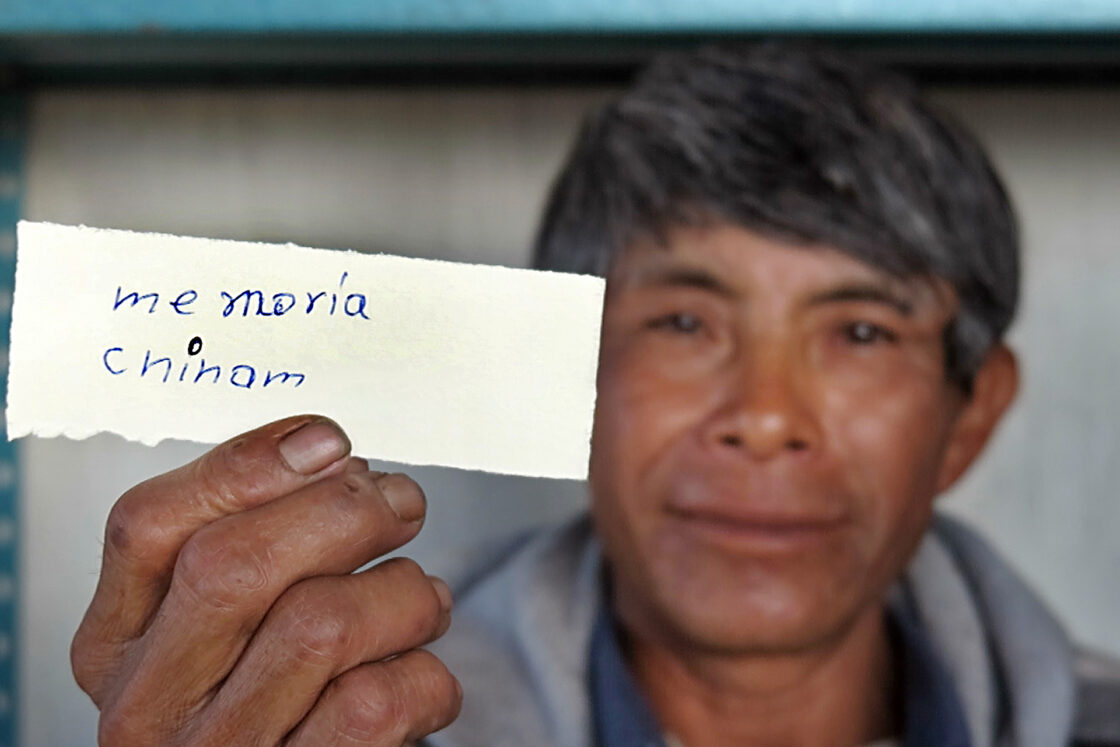 memoria
chinam